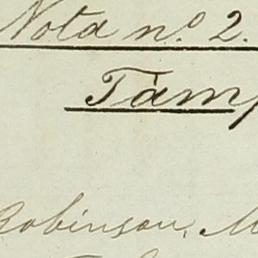 Nota n.º 2.
Tàmp
Robinson, M